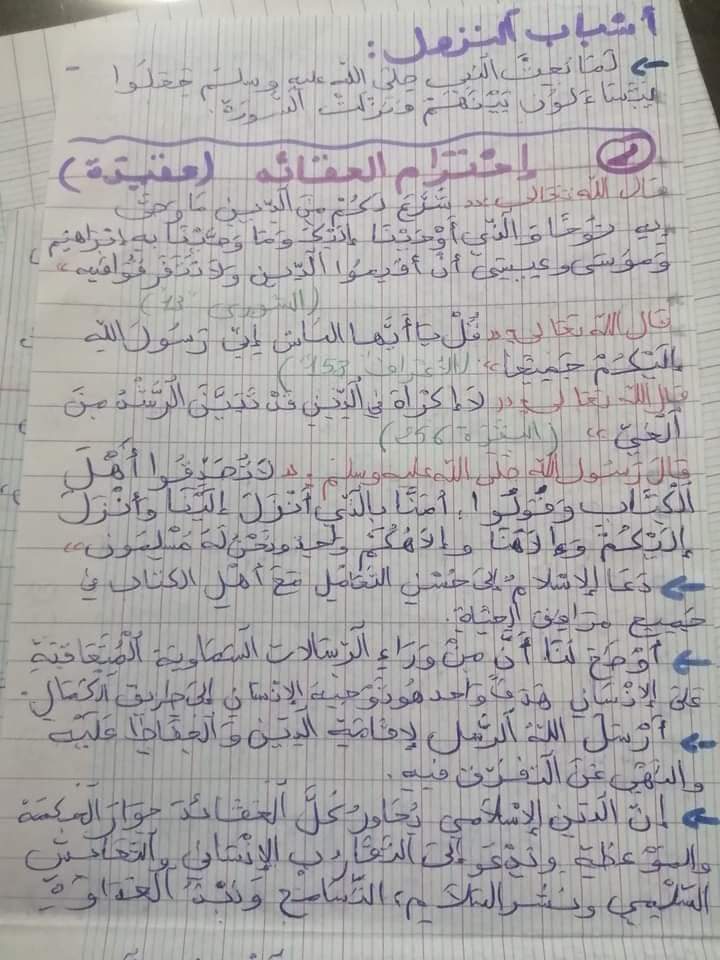 أسباب النزول :
← لَمَا بَعَثَ النَّبِي صَلَى اللَّهُ عَلَيْهِ وَسَلَّم جَعَلُوا
يَتَسَاءَلُونَ بَيْنَهُمْ وَنَزَلَتْ السُّورَةُ.
2 إحترام العقائد (عقيدة)
قال الله تعالى: « شَرَعَ لَكُمْ مِنَ الدِّينِ مَا وَصَّى
بِهِ نُوحًا وَالَّذِي أَوْحَيْنَا إِلَيْكَ وَمَا وَصَّيْنَا بِهِ إِبْرَاهِيمَ
وَمُوسَى وَعِيسَى أَنْ أَقِيمُوا الدِّينَ وَلَا تَتَفَرَّقُوا فِيهِ »
(الشورى 13)
قال الله تعالى: « قُلْ يَا أَيُّهَا النَّاسُ إِنِّي رَسُولَ اللَّهِ
إِلَيْكُمْ جَمِيعًا » (الأعراف 158)
قال الله تعالى: « لَا إِكْرَاهَ فِي الدِّينِ قَدْ تَبَيَّنَ الرُّشْدُ مِنَ
الْغَيِّ » (البقرة 256)
قال رَسُول الله صَلَى الله عليه وسلم : « لَا تُصَدِّقُوا أَهْلَ
الْكِتَاب وَقُولُوا : أَمَنَّا بِالَّذِي أُنْزِلَ إِلَيْنَا وَأُنْزِلَ
إِلَيْكُمْ وَإِلَاهُنَا وَإِلَاهُكُمْ وَاحِد وَنَحْنُ لَهُ مُسْلِمُون »
← دَعَا الإسْلَامُ إلى حُسْنِ التَعَامُلِ مَعَ أَهْلِ الكتاب في
جَمِيعِ مرافق الحياة.
← أَوْضَحَ لَنَا أَنَّ مِنْ وَرَاءِ الرِّسَالات السَّمَاوِيَة الْمُتَعَاقِبَةِ
عَلَى الإنْسَانِ هَدَفًا وَاحد هُوَ تَوْجِيهُ الإنسَانِ إلَى طَرِيقِ الكَمَالِ.
← أَرْسَلَ اللَّهُ الرُّسُل لِإقَامَةِ الدِّينِ وَالْحِفَاظِ عَلَيْهِ
وَالنَّهْيِ عَنْ التَفَرُّقِ فِيهِ.
← إنَّ الدِّينَ الإسْلَامِي يُحَاوِرُ كُلَّ الْعَقَائِدَ حِوَارَ الْحِكْمَةِ
والمَوْعِظَةِ وَيَدْعُو إلَى التَّقَارُبِ الإنْسَانِي وَالتَّعَايُشِ
السِّلْمِي وَنَشْرِ السَّلَامِ، التَّسَامُحِ وَنَبْذُ الْعَدَاوَةِ